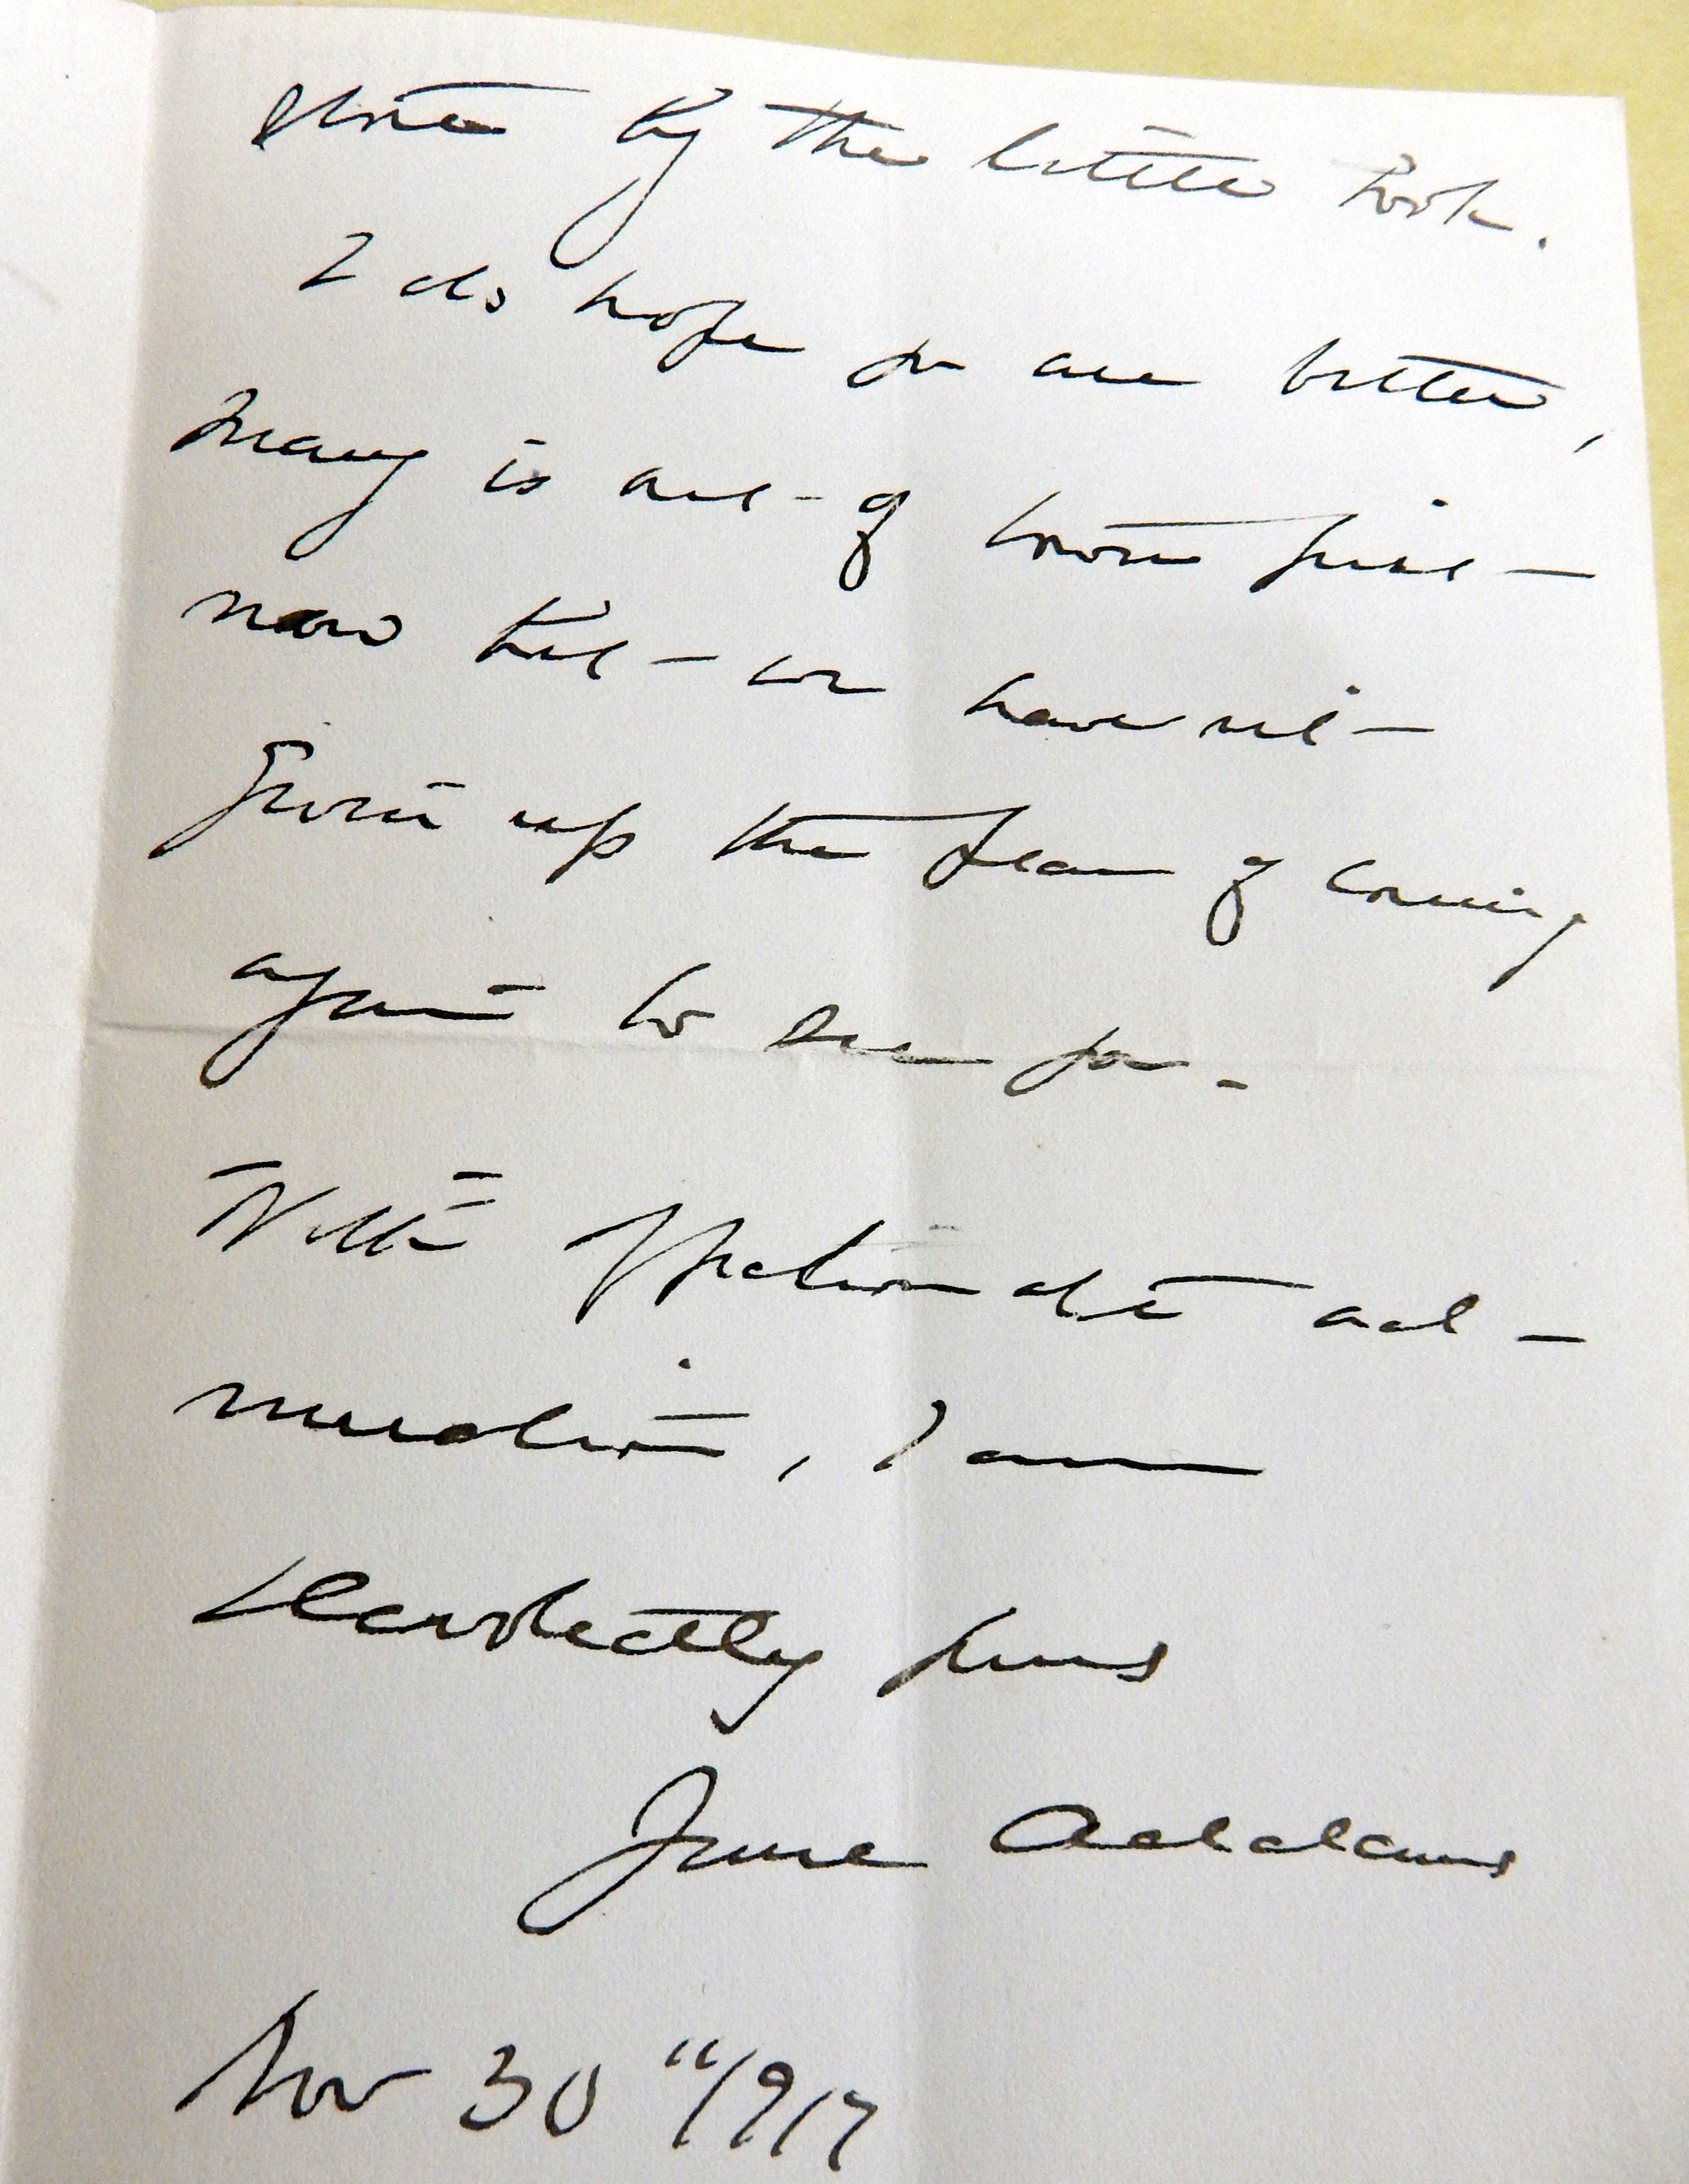 store by the little book.
I do hope you are better,
Mary is out of town just
now but we haven't
given up the plan of coming
again to see you.
With affectionate ad-
miration, I am
devotedly yours
Jane Addams
Nov 30" 1917